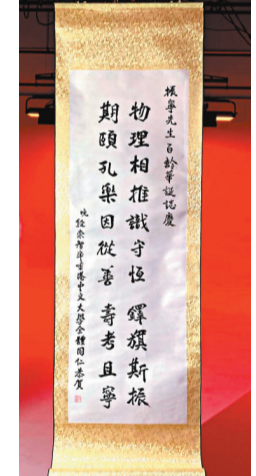 振寧先生百齡華誕誌慶
物理相推識守恆 鐸旗斯振
期頤孔樂因從善 壽考且寧
晚段崇智率香港中文大學全體同仁恭賀